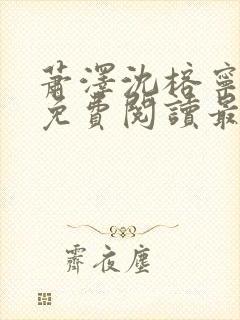 蕭澤沈榕寧
免費閱讀最
霽夜塵